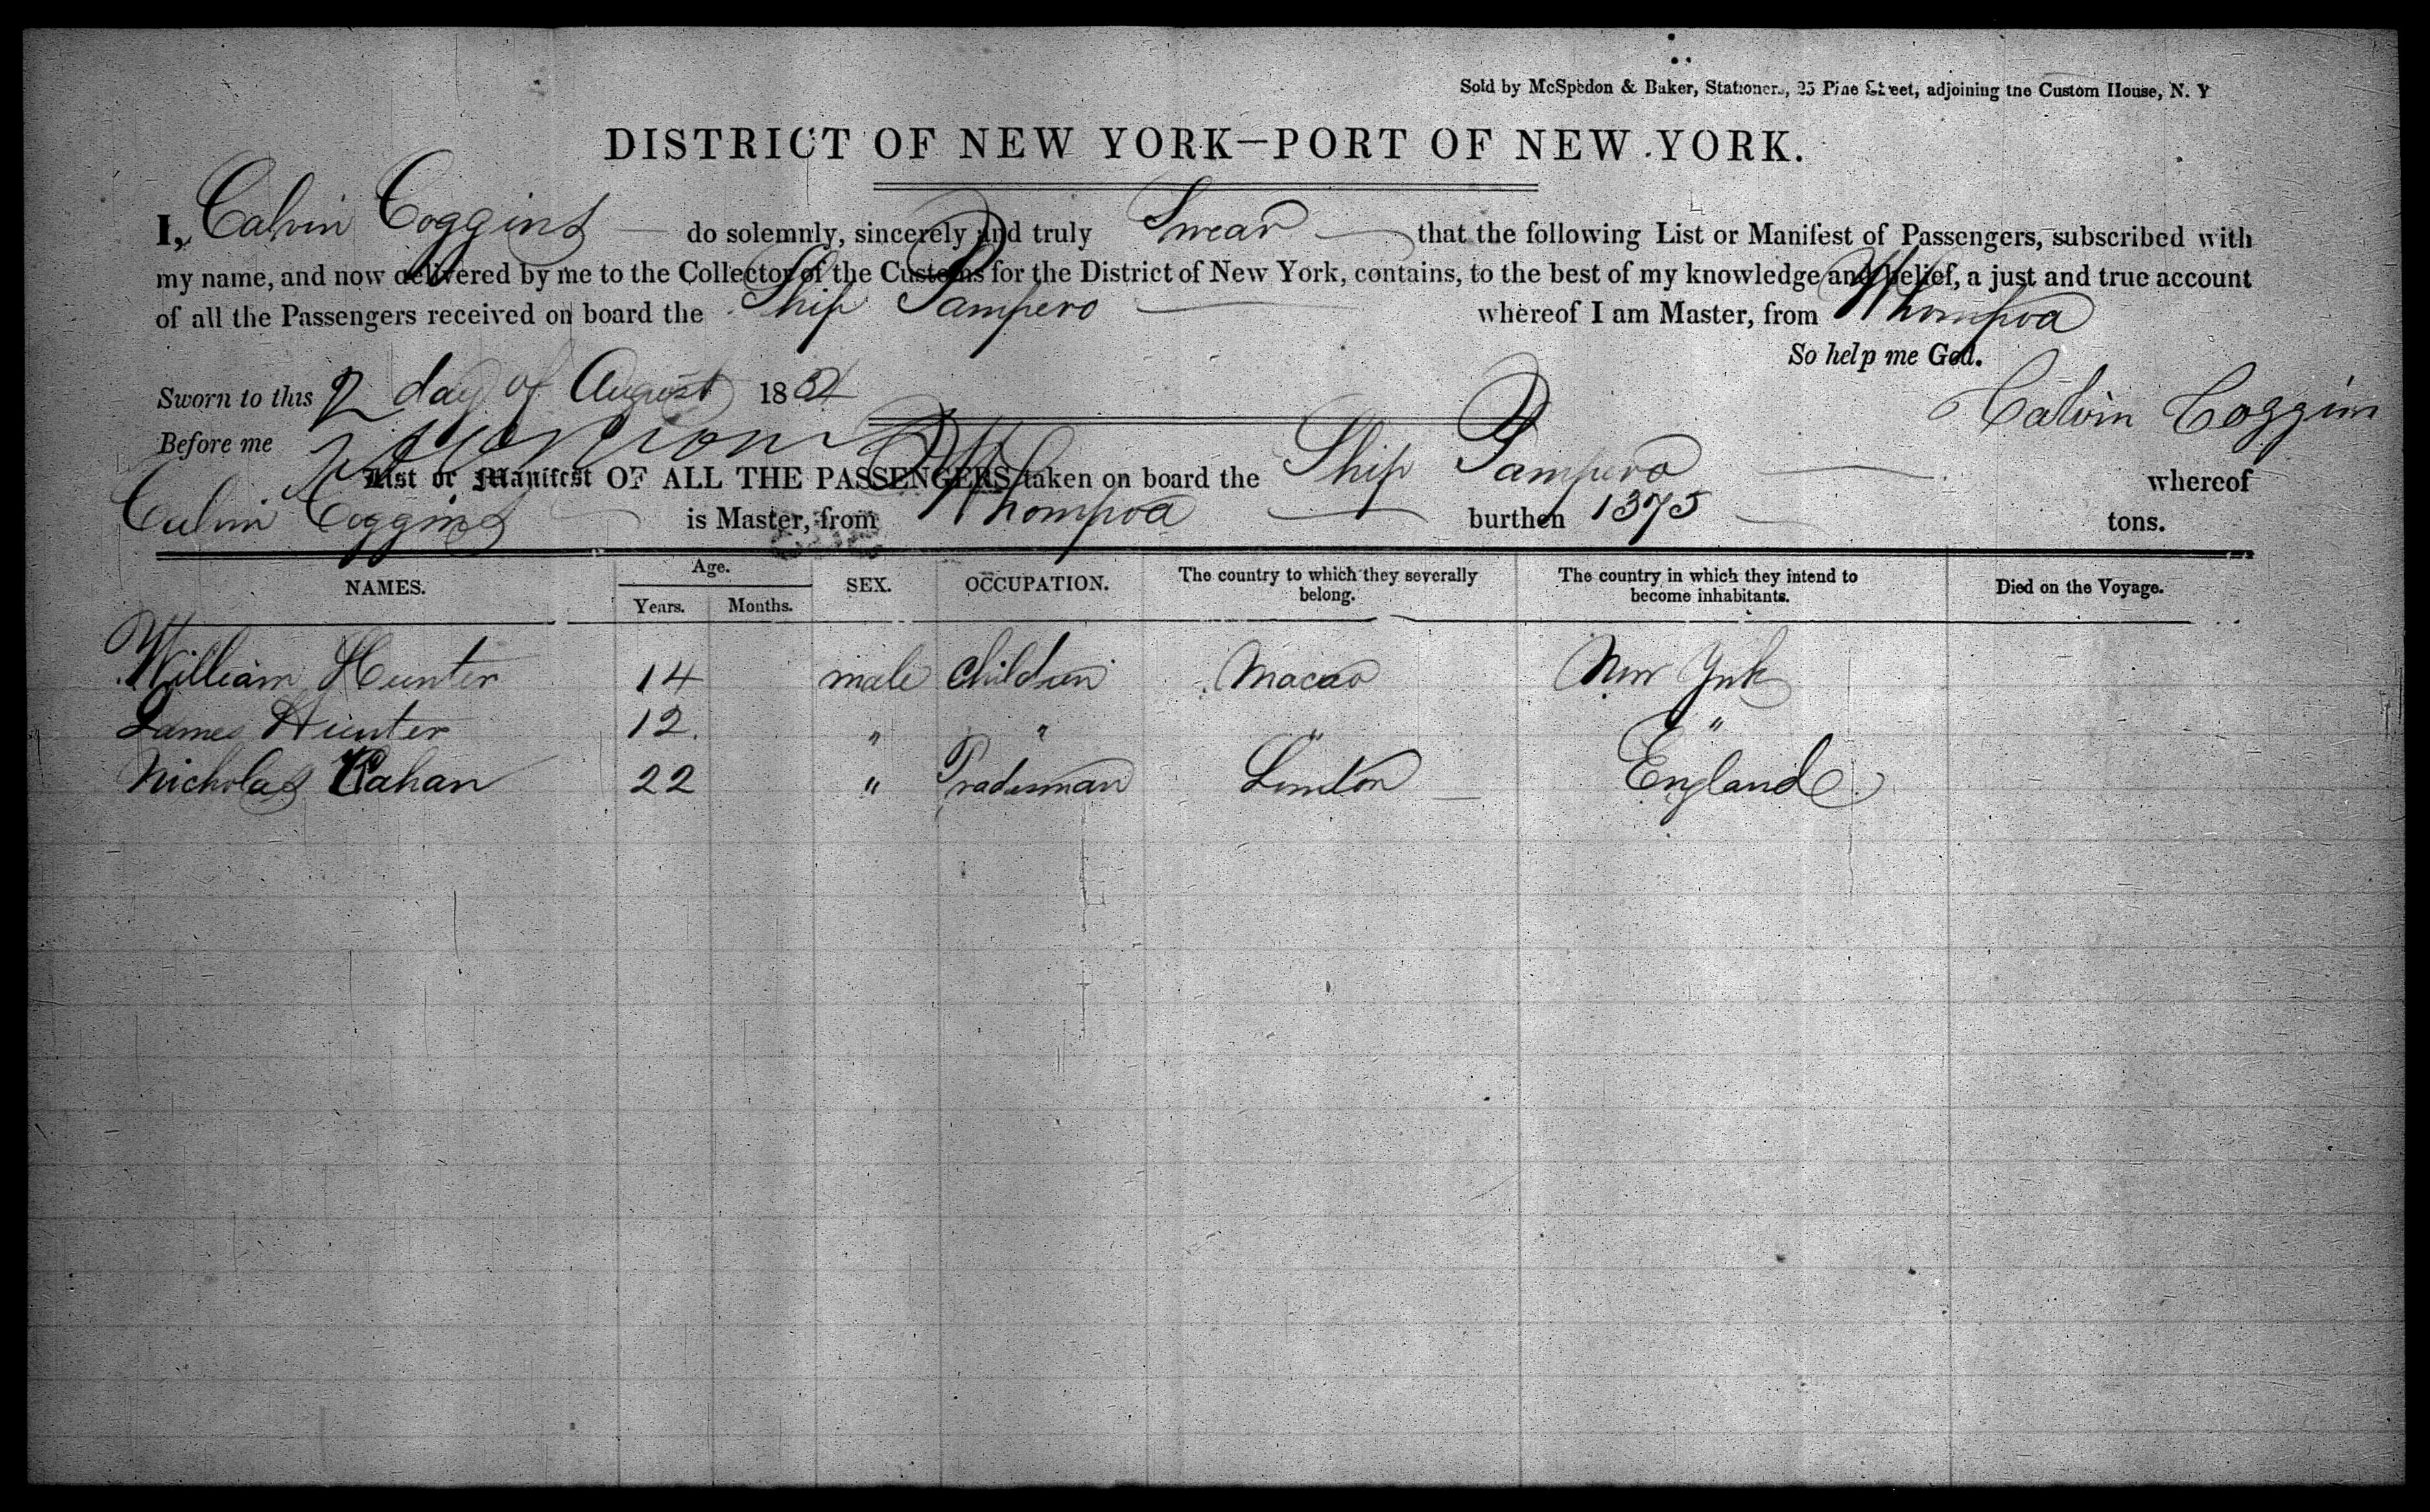 Sold by McSpedon & Baker, Stationers, 25 Pine Street, adjoining the Custom House, N. Y
DISTRICT OF NEW YORK—PORT OF NEW YORK.
I, Calvin Coggins do solemnly, sincerely and truly Swear that the following List or Manifest of Passengers, subscribed with
my name, and now delivered by me to the Collector of the Customs for the District of New York, contains, to the best of my knowledge and belief, a just and true account
of all the Passengers received on board the Ship Pampero whereof I am Master, from Whompoa
So help me God.
Sworn to this 2 day of August 1854
Calvin Coggins
Before me
List or Manifest OF ALL THE PASSENGERS taken on board the Ship Pampero whereof
Calvin Coggins is Master, from Whompoa burthen 1375 tons.
NAMES. Age. Years. Months. SEX. OCCUPATION. The country to which they severally belong. The country in which they intend to become inhabitants. Died on the Voyage.
William Hunter 14 male Children Macao New York
James Hunter 12. " " " "
Nicholas 22 " Tradesman London England